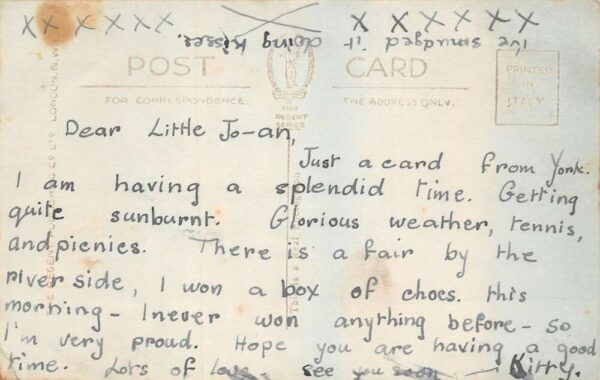 X X X X X X X X X X X X
I've smudged it doing kisses.
POST CARD
FOR CORRESPONDENCE. THE ADDRESS ONLY.
THE REGENT SERIES
PRINTED IN ITALY
Dear Little Jo-an,
Just a card from York.
I am having a splendid time. Getting
quite sunburnt. Glorious weather, tennis,
and picnics. There is a fair by the
riverside, I won a box of chocs. this
morning - I never won anything before - so
I'm very proud. Hope you are having a good
time. Lots of love - see you soon - Kitty.